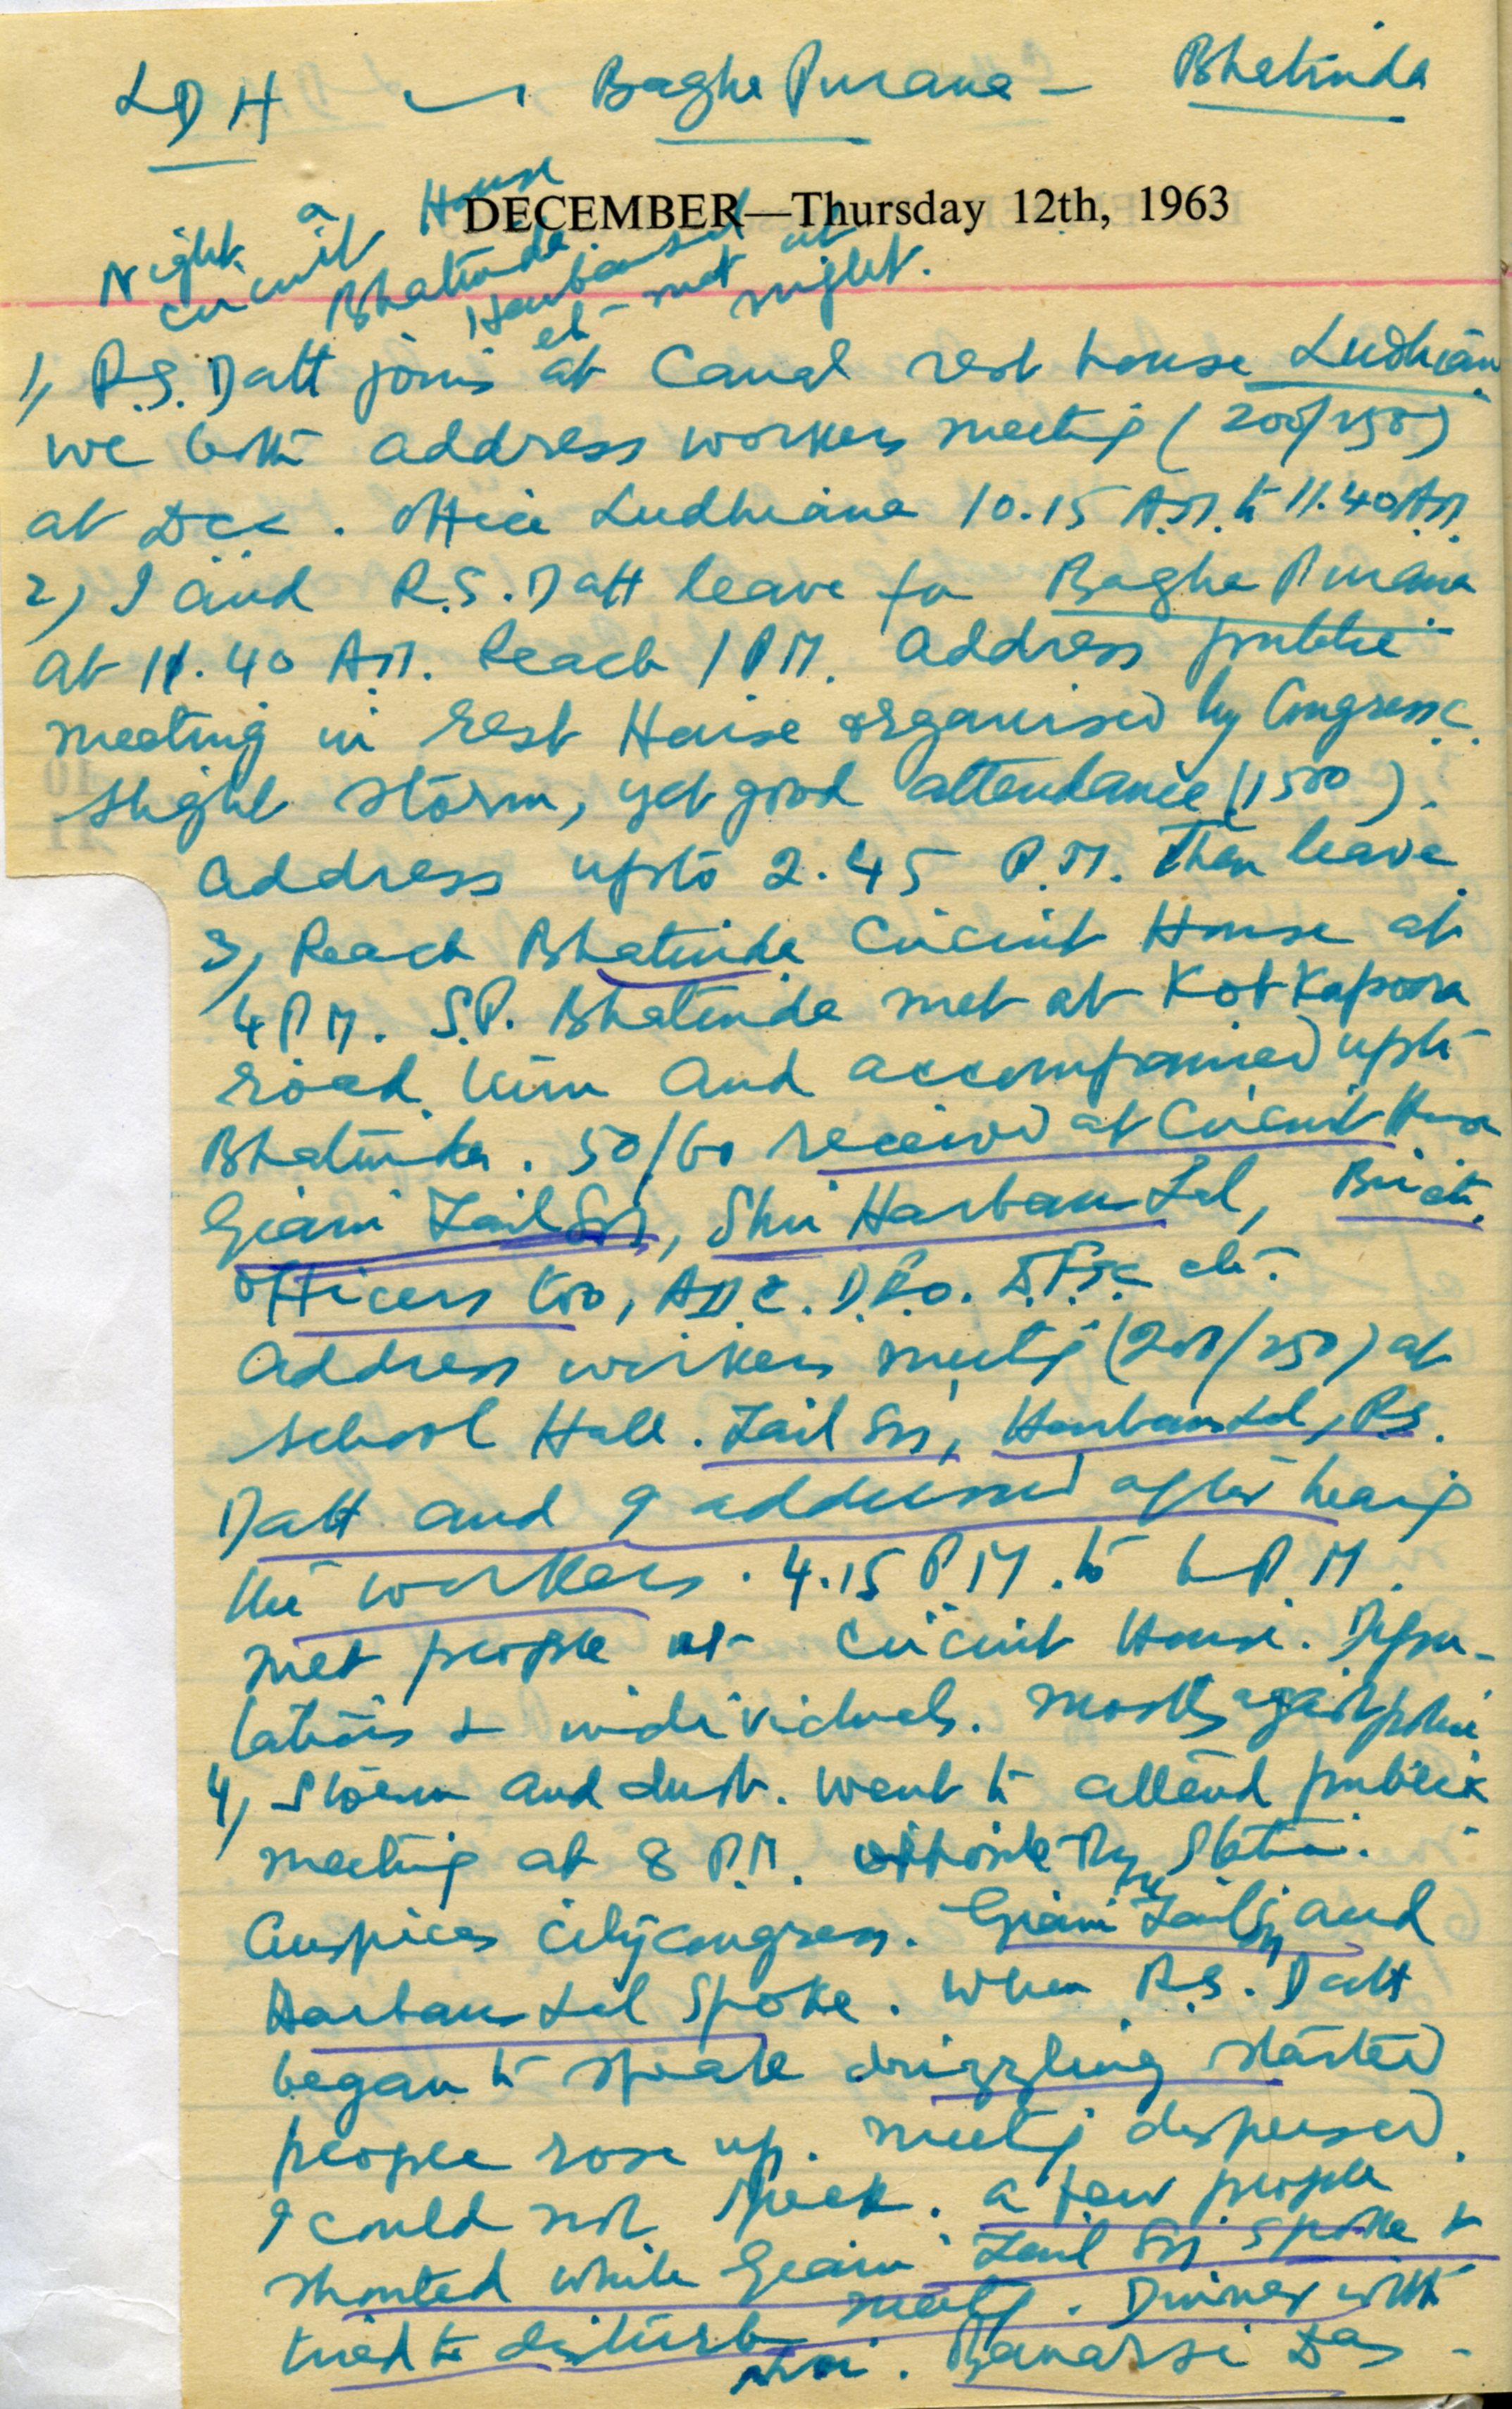 LDH — Bagha Purana — Bhatinda
DECEMBER—Thursday 12th, 1963
Night a House
circuit
Bhatinda.
Harbansal
et met at
night.
1) R.S. Datt joins at Canal rest house Ludhiana
we both address workers meeting (200/250)
at DCC. Office Ludhiana 10.15 A.M. to 11.40 A.M.
2) I and R.S. Datt leave for Bagha Purana
at 11.40 A.M. Reach 1 P.M. Address public
meeting in rest House organised by Congress.
slight storm, yet good attendance (1500).
Address upto 2.45 P.M. Then leave.
3) Reach Bhatinda Circuit House at
4 P.M. S.P. Bhatinda met at Kot Kapoora
road and accompanied upto
Bhatinda. 50/60 received at Circuit House
Giani Zail Sn, Shri Harbans Lal,
Officers too, A.D.C. D.R.O. etc.
Address workers meeting (200/250) at
School Hall. Zail Sn, Harbans Lal, R.S.
Datt and I addressed after hearing
the workers. 4.15 P.M. to 6 P.M.
met people at Circuit House. Depu-
tations & individuals. Mostly against police
4) Storm and dust. Went to attend public
meeting at 8 P.M. opposite Rly Station.
Auspices city congress. Giani Zail Sn and
Harbans Lal spoke. When R.S. Datt
began to speak drizzling started
people rose up. Meeting dispersed.
I could not speak. a few people
shouted while Giani Zail Sn spoke &
tried to disturb meeting. Dinner with
Banarsi Das